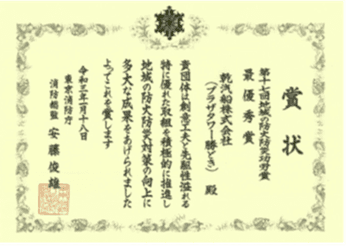 賞状
第十七回地域の防火防災功労賞
最優秀賞
乾汽船株式会社
(プラザタワー勝どき) 殿
貴団体は創意工夫と先駆性溢れる
特に優れた取組を積極的に推進し
地域の防火防災対策の向上に
多大な成果をあげられました
よってこれを賞します
令和三年二月十八日
東京消防庁
消防総監 安藤俊雄